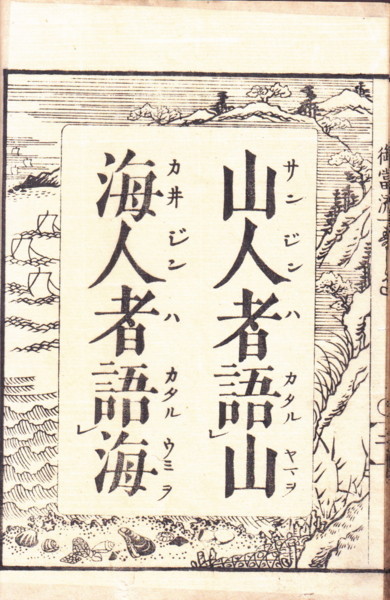 山人者語レ山
サンジンハカタルヤマヲ
海人者語レ海
カ井ジンハカタルウミヲ